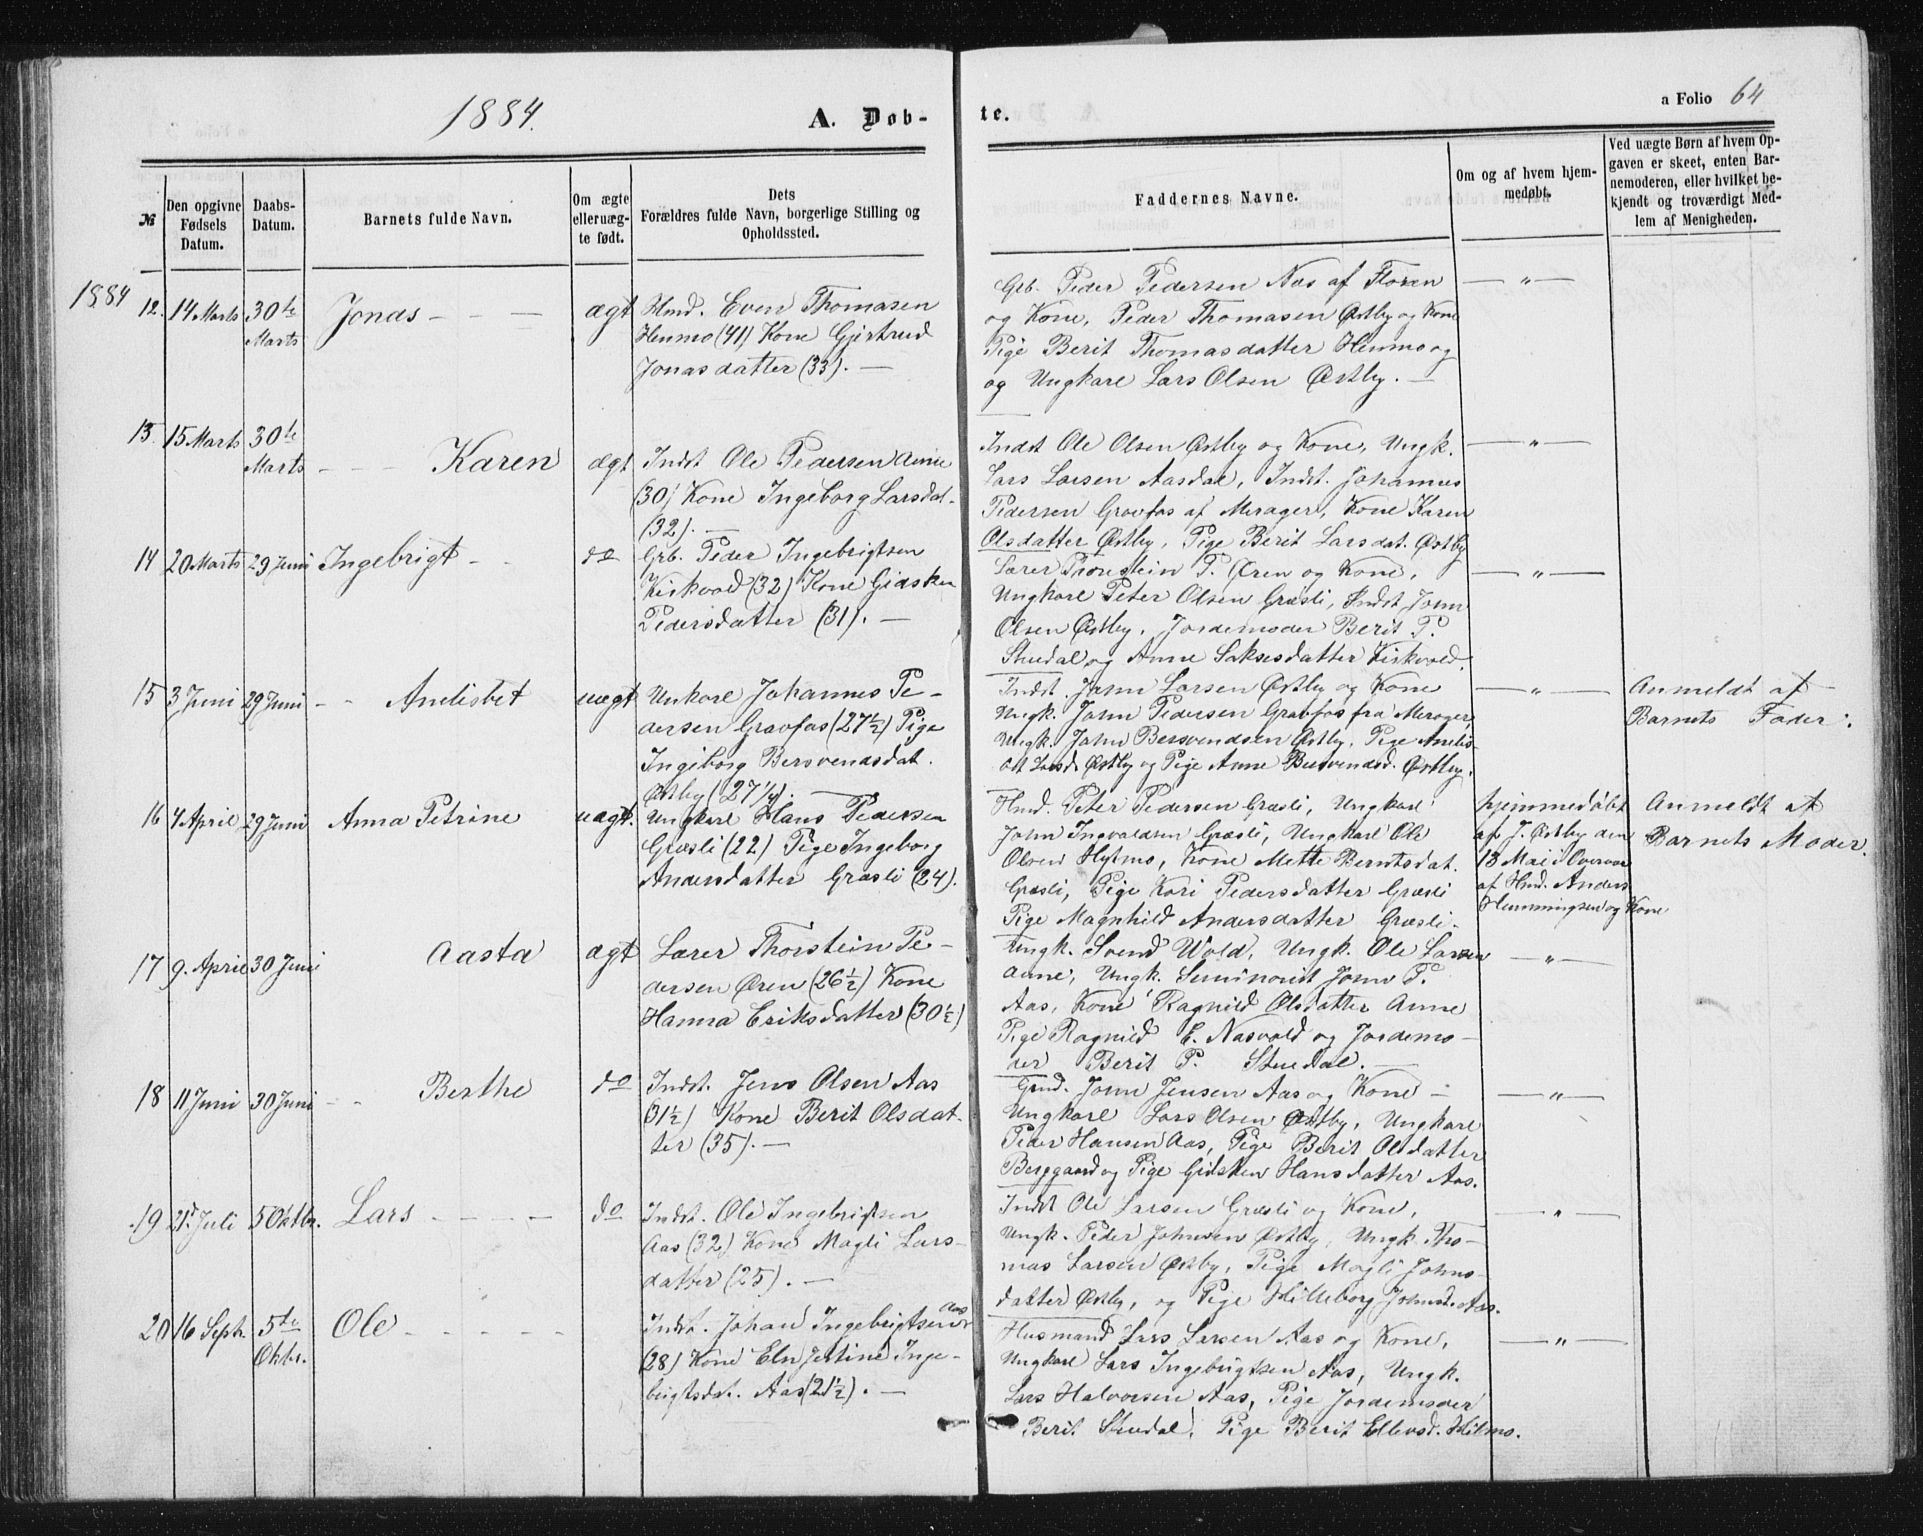 1884.
A. Døb-
te.
a Folio 64
№
Den opgivne
Fødsels
Datum.
Daabs-
Datum.
Barnets fulde Navn.
Om ægte
elleruæg-
te født.
Dets
Forældres fulde Navn, borgerlige Stilling og
Opholdssted.
Faddernes Navne.
Om og af hvem hjem-
medøbt.
Ved uægte Børn af hvem Op-
gaven er skeet, enten Bar-
nemoderen, eller hvilket be-
kjendt og troværdigt Med-
lem af Menigheden.
1884
12. 14 Marts 30te
Marts
Jonas - - -
ægt
Hmd. Even Thomasen
Henmo (41) Kone Gjertrud
Jonasdatter (33). —
Grb. Peder Pedersen Næs af Floren
og Kone, Peder Thomasen Østby og Kone
Pige Berit Thomasdatter Henmo og
og Ungkarl Lars Olsen Østby. —
— „ —
13. 15 Marts 30te
Marts
- - - Karen
ægt
Indst Ole Pedersen Aune
(30) Kone Ingeborg Larsdat.
(32). —
Indst Ole Olsen Østby og Kone, Ungk.
Lars Larsen Aasdal, Indst. Johannes
Pedersen Gravfos af Merager, Kone Karen
Olsdatter Østby, Pige Berit Larsdat. Østby
— „ —
14 20 Marts 29 Juni
Ingebrigt - -
do
Grb. Peder Ingebrigtsen
Kirkvold (32) Kone Gidsken
Pedersdatter (31). —
Lærer Thorstein P. Øren og Kone,
Ungkarl Peter Olsen Græsli, Indst John
Olsen Østby, Jordemoder Berit P.
Stuedal og Anne Saksesdatter Kirkvold.
— „ —
15 3 Juni 29 Juni
- - Anelisbet
uægt
Unkarl Johannes Pe-
dersen Gravfos (27½) Pige
Ingeborg Bersvendsdat.
Østby (27¼).
Indst. John Larsen Østby og Kone
Ungk. John Pedersen Gravfos fra Merager,
Ungk. John Bersvendsen Østby. Pige Anelis-
bet Larsd. Østby og Pige Anne Bersvendsd. Østby.
— „ —
Anmeldt af
Barnets Fader.
16 4 April 29 Juni
Anna Petrine
uægt.
Ungkarl Hans Pedersen
Græsli (22) Pige Ingeborg
Andersdatter Græsli (24).
Hmd. Peter Pedersen Græsli, Ungkarl
John Ingvaldsen Græsli, Ungkarl Ole
Olsen Hylmo, Kone Mette Berntsdat.
Græsli, Pige Kari Pedersdatter Græsli
Pige Magnhild Andersdatter Græsli.
hjemmedøbt
af J. Østby den
13 Mai i Overvær
af Hmd. Anders
Hemmingsen og Kone
Anmeldt af
Barnets Moder.
17 9. April 30 Juni
Aasta
ægt
Lærer Thorstein Pe-
dersen Øren (26½) Kone
Hanna Eriksdatter (30½)
Ungk. Svend Wold, Ungk. Ole Larsen
Aune, Ungk. Seminarist John P.
Aas, Kone Ragnild Olsdatter Aune
Pige Ragnild E. Næsvold og Jordemo-
der Berit P. Stuedal. —
— „ —
18 11 Juni 30 Juni
- - Berthe
do
Indst. Jens Olsen Aas
(31½) Kone Berit Olsdat-
ter (35). —
Grmd. John Jensen Aas og Kone -
Ungkarl Lars Olsen Østby, Ungkarl
Peder Hansen Aas, Pige Berit Olsdatter
Berggaard og Pige Gidsken Hansdatter Aas.
— „ —
19 21. Juli 5 Oktbr.
Lars - - - -
do
Indst. Ole Ingebrigtsen
Aas (32) Kone Magli Lars-
datter (25). —
Indst Ole Larsen Græsli og Kone,
Ungk. Peder Johnsen Østby, Ungk. Tho-
mas Larsen Østby, Pige Magli Johns-
datter Østby, og Pige Hilleborg Johnsd. Aas.
— „ —
20 16 Septb. 5te
Oktbr.
Ole - - - - -
Aas
Indst. Johan Ingebrigtsen
(28) Kone Eln Jettine Inge-
brigtsdat. Aas (21½). —
Husmand Lars Larsen Aas og Kone,
Ungkarl Lars Ingebrigtsen Aas, Ungk.
Lars Halvorsen Aas, Pige Jordemoder
Berit Stuedal, Pige Berit Ellevsd. Hilmo.
— „ —